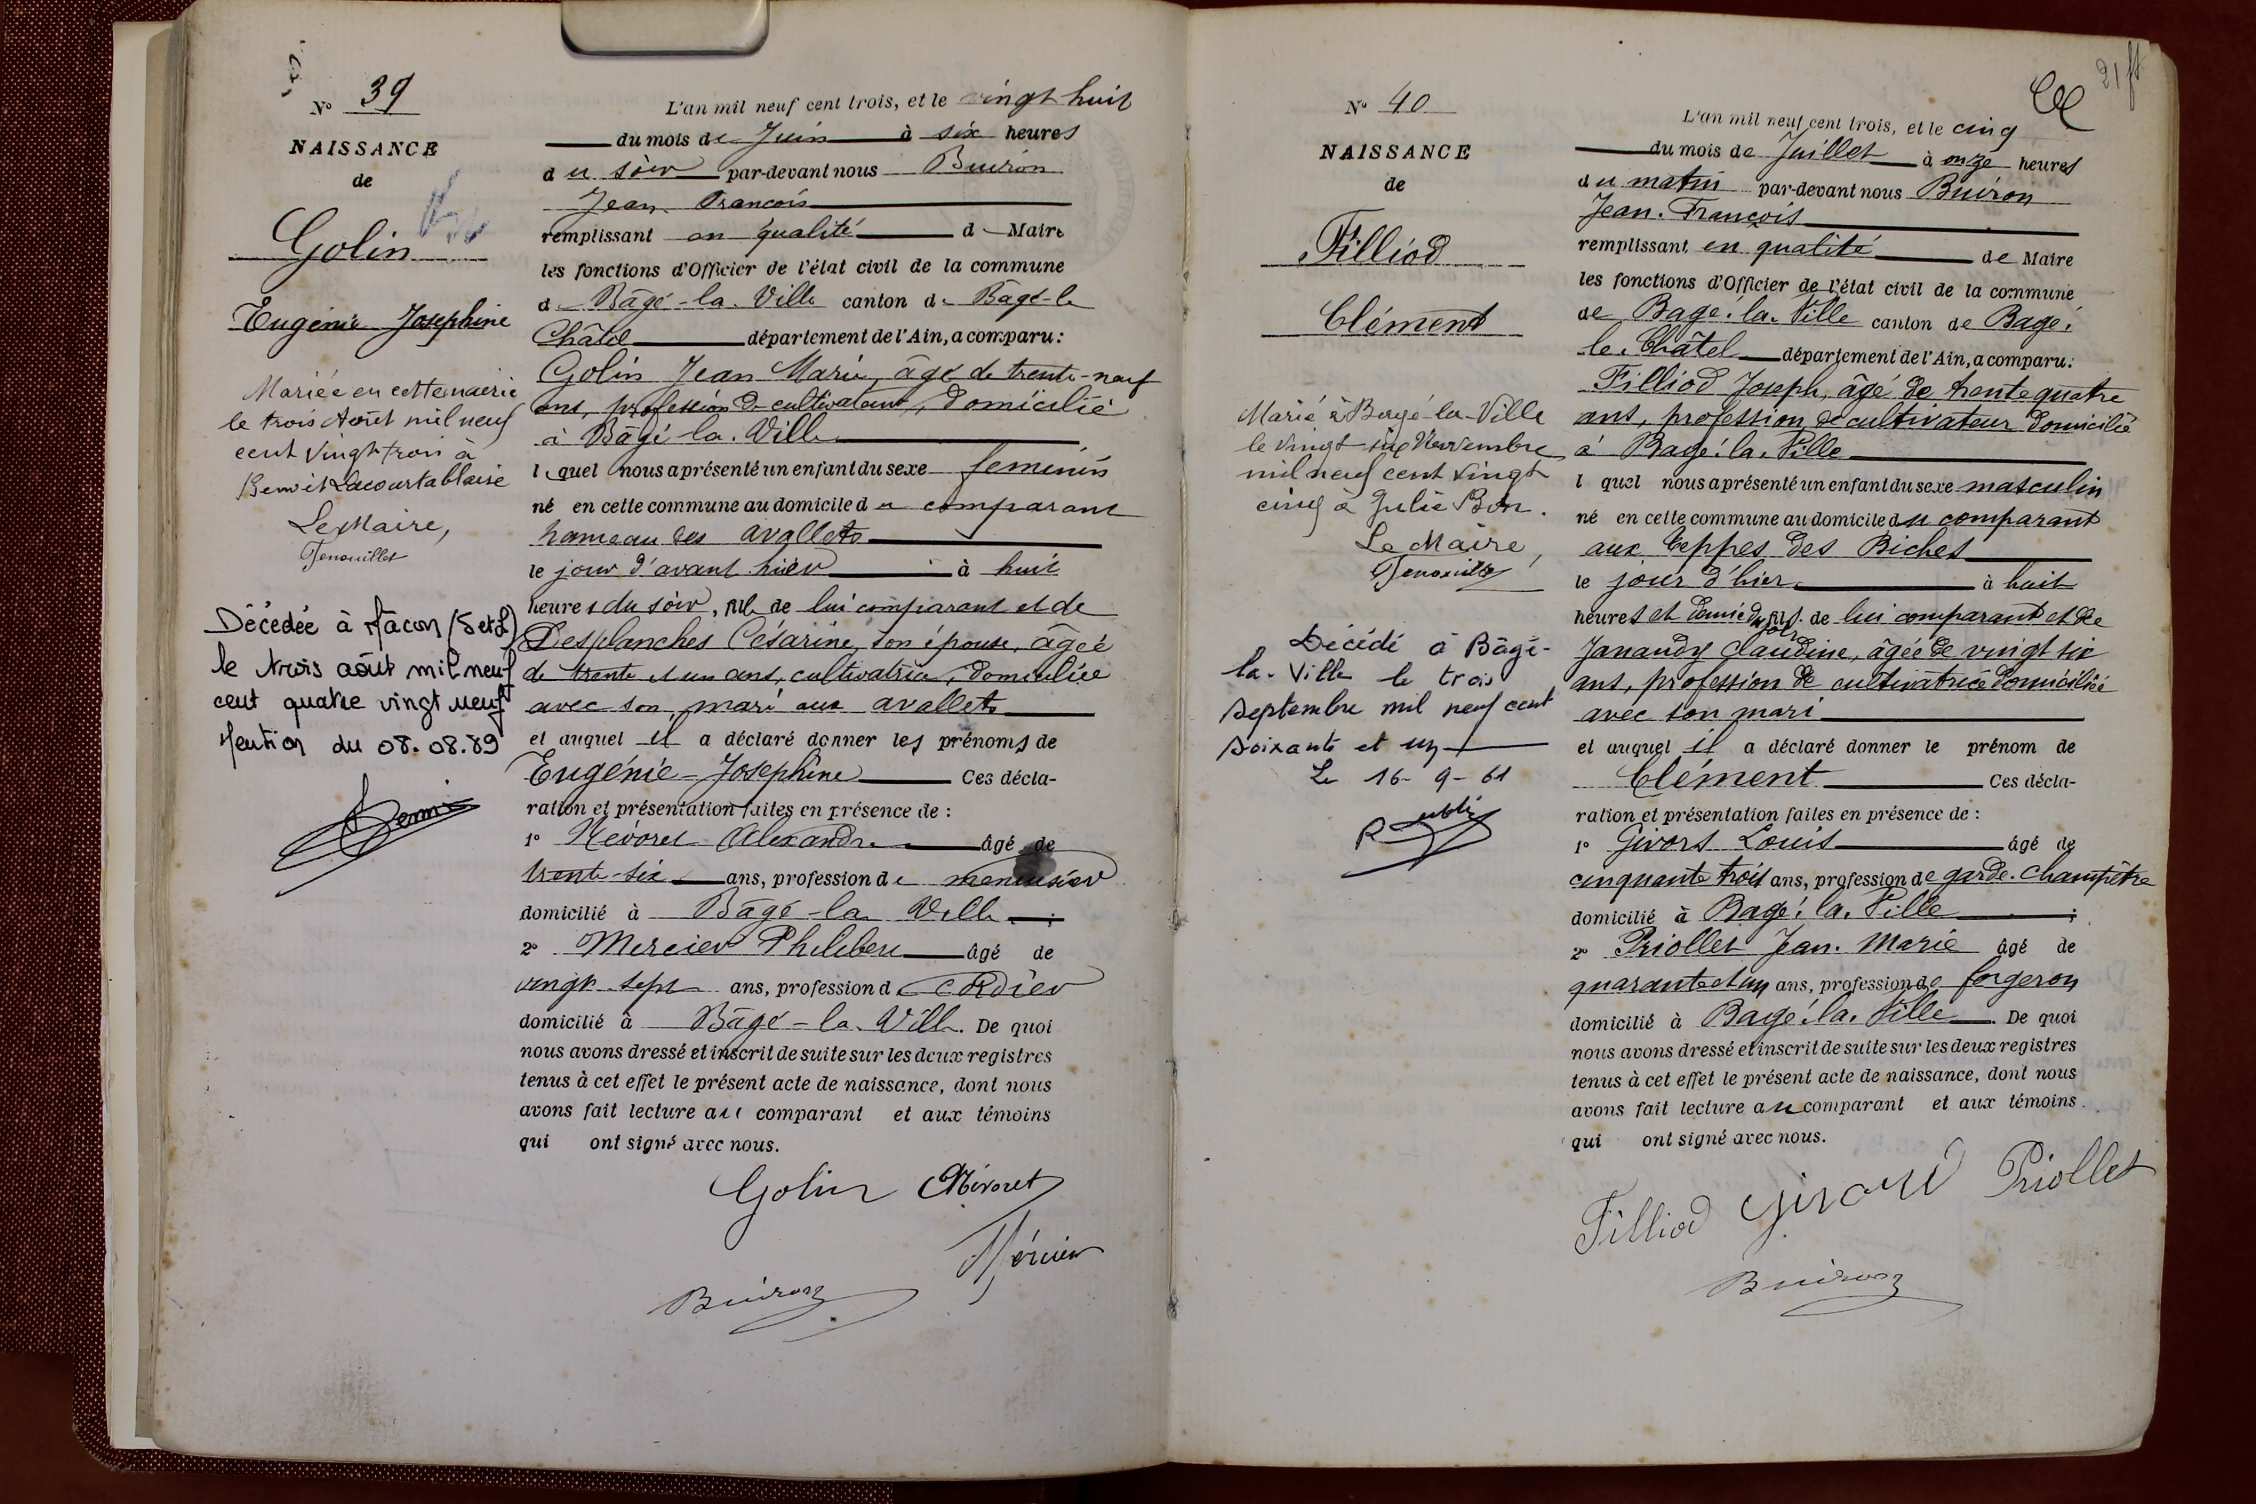 N° 39
NAISSANCE
de
Golin
Eugénie Josephine
Mariée en cette mairie
le trois Août mil neuf
cent vingt trois à
Benoit Lacourtablaise
Le Maire,
Tenouillet
Décédée à Mâcon (S et L)
le trois août mil neuf
cent quatre vingt neuf
Mention du 08.08.89
L'an mil neuf cent trois, et le vingt huit
du mois de Juin à six heures
du soir par-devant nous Buiron
Jean François
remplissant en qualité d Maire
les fonctions d'Officier de l'état civil de la commune
d Bâgé-la-Ville canton de Bâgé-le
Châtel département de l'Ain, a comparu:
Golin Jean Marie, âgé de trente-neuf
ans, profession de cultivateur, domicilié
à Bâgé la Ville
lequel nous a présenté un enfant du sexe feminin
né en cette commune au domicile du comparant
hameau des avallets
le jour d'avant hier à huit
heures du soir, fille de lui comparant et de
Desplanches Césarine, son épouse, âgée
de trente et un ans, cultivatrice, domiciliée
avec son mari aux avallets
et auquel il a déclaré donner les prénoms de
Eugénie-Josephine Ces décla-
ration et présentation faites en présence de :
1° Névoret Alexandre âgé de
trente-six ans, profession de menuisier
domicilié à Bâgé-la Ville ;
2° Mercier Philibert âgé de
vingt-sept ans, profession de cordier
domicilié à Bâgé-la Ville. De quoi
nous avons dressé et inscrit de suite sur les deux registres
tenus à cet effet le présent acte de naissance, dont nous
avons fait lecture au comparant et aux témoins
qui ont signé avec nous.
Golin Névoret
Mércier
Buiron
21
N° 40
NAISSANCE
de
Filliod
Clément
Marié à Bagé-la-Ville
le vingt-six Novembre
mil neuf cent vingt
cinq à Julie Bon.
Le Maire,
Tenouillet
Décédé à Bâgé-
la-Ville le trois
septembre mil neuf cent
soixante et un
Le 16-9-61
L'an mil neuf cent trois, et le cinq
du mois de Juillet à onze heures
du matin par-devant nous Buiron
Jean-François
remplissant en qualité de Maire
les fonctions d'Officier de l'état civil de la commune
de Bagé-la-Ville canton de Bagé-
le-Châtel département de l'Ain, a comparu:
Filliod Joseph, âgé de trente quatre
ans, profession de cultivateur domicilié
à Bagé-la-Ville
l quel nous a présenté un enfant du sexe masculin
né en cette commune au domicile du comparant
aux Teppes des Biches
le jour d'hier à huit
heures et demie du soir, fils de lui comparant et de
Janaudy Claudine, âgée de vingt six
ans, profession de cultivatrice domiciliée
avec son mari
et auquel il a déclaré donner le prénom de
Clément Ces décla-
ration et présentation faites en présence de :
1° Givors Louis âgé de
cinquante trois ans, profession de garde-champêtre
domicilié à Bagé-la-Ville ;
2° Priollet Jean-Marie âgé de
quarante et un ans, profession de forgeron
domicilié à Bagé-la-Ville. De quoi
nous avons dressé et inscrit de suite sur les deux registres
tenus à cet effet le présent acte de naissance, dont nous
avons fait lecture au comparant et aux témoins
qui ont signé avec nous.
Filliod Givors Priollet
Buiron